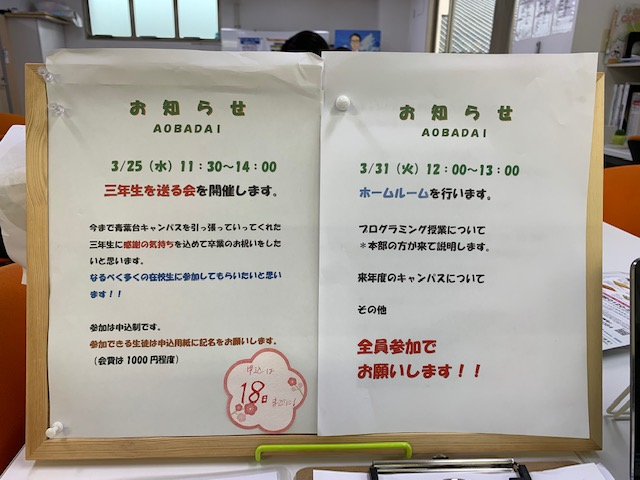 お知らせ
AOBADAI
3/25（水）11：30～14：00
三年生を送る会を開催します。
今まで青葉台キャンパスを引っ張っていってくれた
三年生に感謝の気持ちを込めて卒業のお祝いをした
いと思います。
なるべく多くの在校生に参加してもらいたいと思い
ます！！
参加は申込制です。
参加できる生徒は申込用紙に記名をお願いします。
（会費は1000円程度）
申込は
18日
までに！
お知らせ
AOBADAI
3/31（火）12：00～13：00
ホームルームを行います。
プログラミング授業について
＊本部の方が来て説明します。
来年度のキャンパスについて
その他
全員参加で
お願いします！！